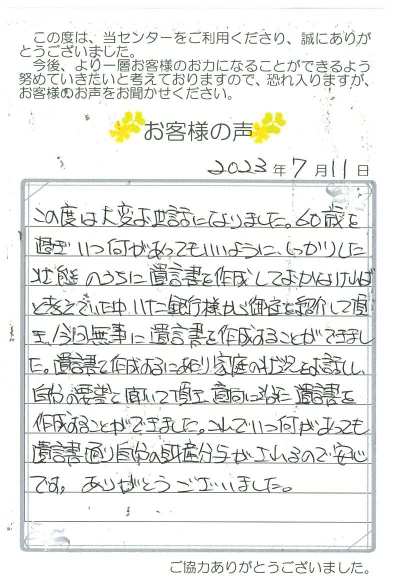 この度は、当センターをご利用くださり、誠にありが
とうございました。
今後、より一層お客様のお力になることができるよう
努めていきたいと考えておりますので、恐れ入りますが、
お客様のお声をお聞かせください。
お客様の声
2023年7月11日
この度は大変お世話になりました。60歳を
過ぎ いつ何があってもいいように、しっかりした
状態のうちに遺言書を作成しておかなければ
と考えていた中 いた銀行様から御社を紹介して頂
き、今回無事に遺言書を作成することができまし
た。遺言書を作成するにあたり家庭の状況をお話し、
自分の要望を聞いて頂き、意向に沿った遺言書を
作成することができました。これでいつ何があっても
遺言書通り自分の財産分与がされるので安心
です。ありがとうございました。
ご協力ありがとうございました。